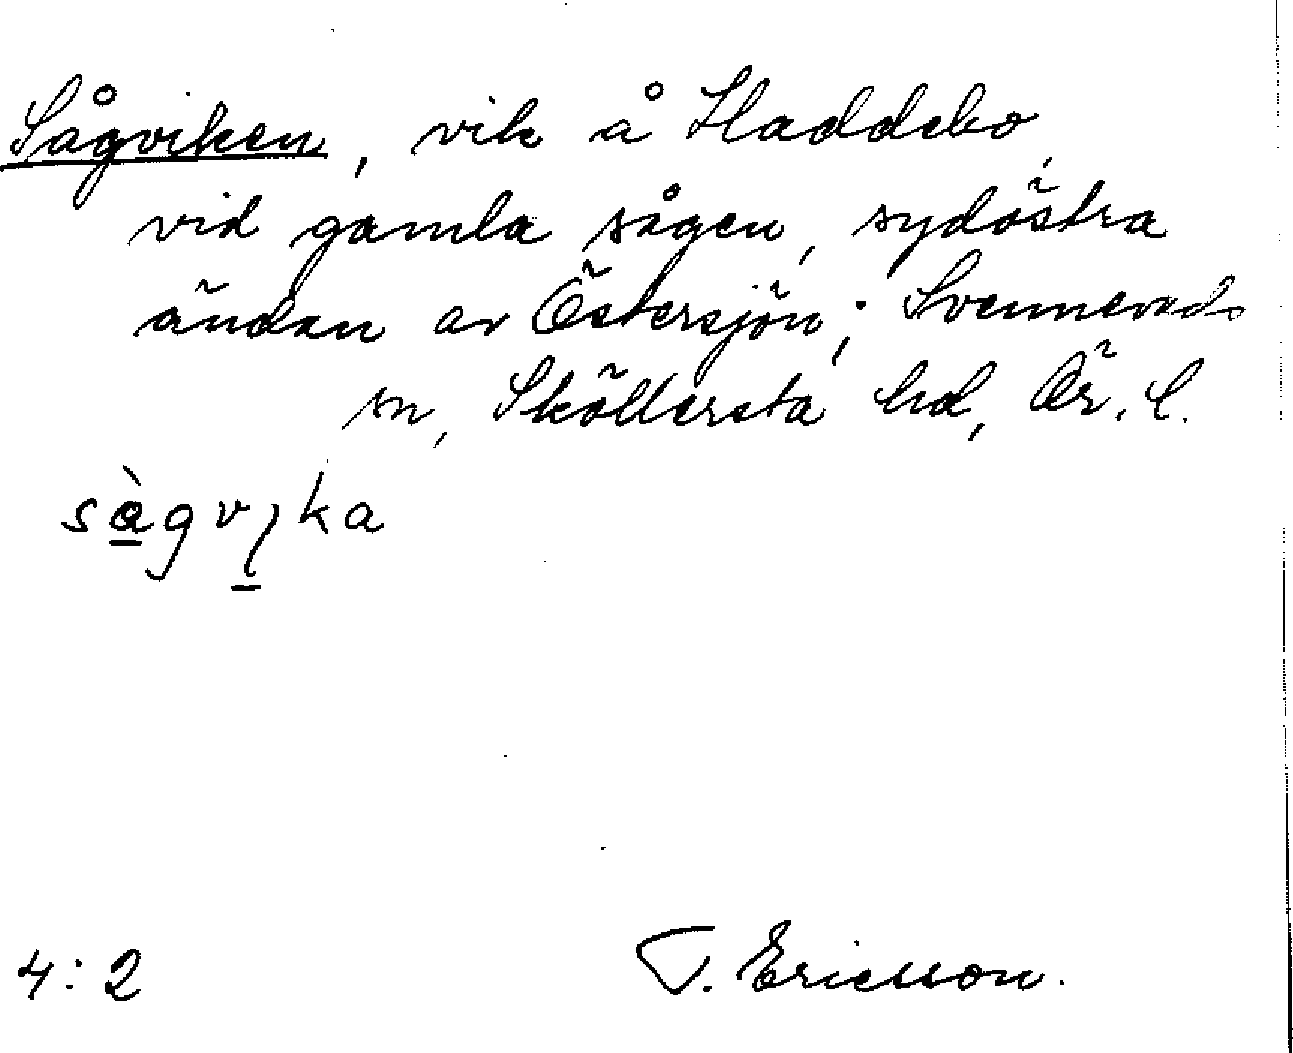 Sågviken, vik å Haddebo,
vid gamla sågen, sydöstra
ändan av Östersjön; Svennevads
sn, Sköllersta hd, Ör. l.
sàgvıka
4:2 T. Ericsson.